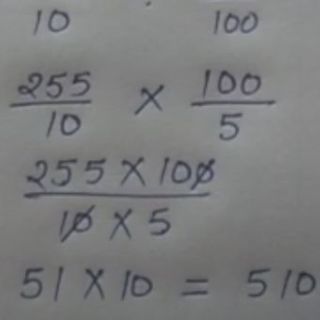 10 100
255/10 × 100/5
255 × 100/10 × 5
51 × 10 = 510